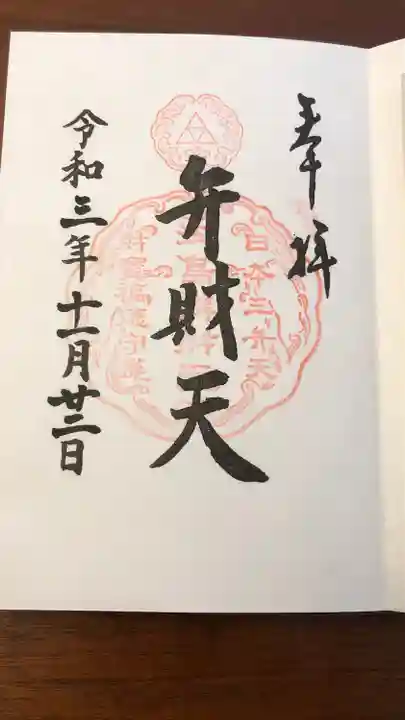 奉拝
弁財天
日本三弁天
令和三年十一月廿二日